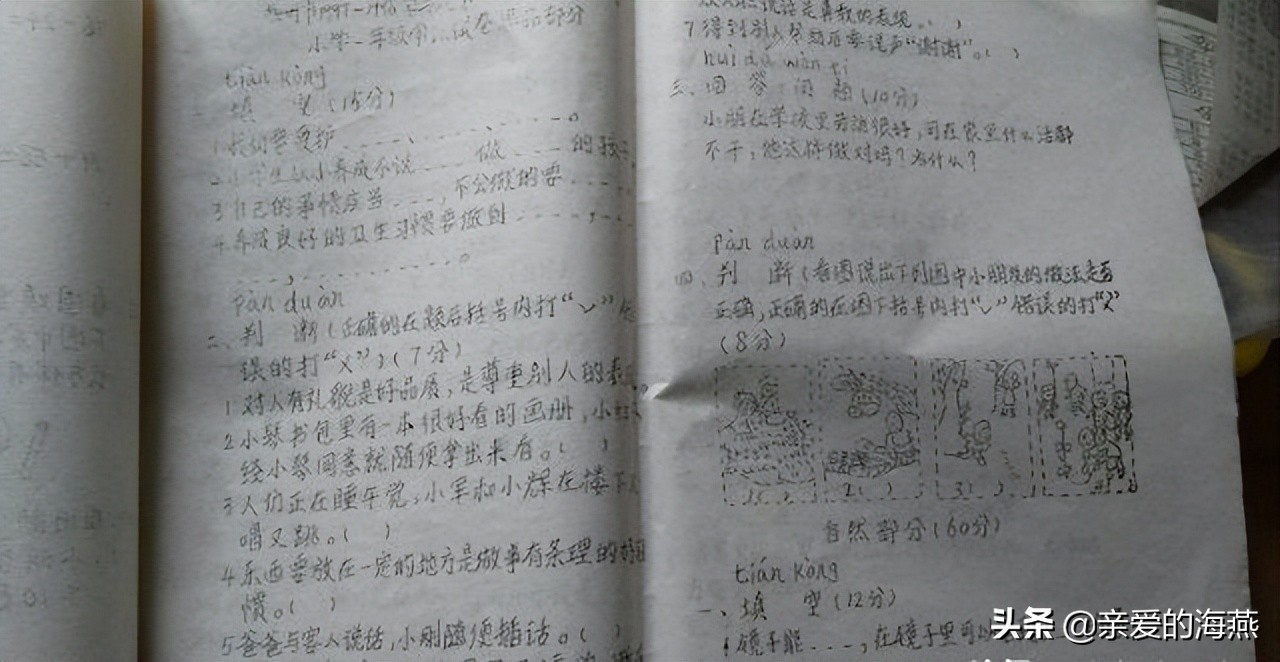 小学一年级
部分
tián kòng
一、填 空(15分)
1.我们要爱护
2.小学生从小养成不说 做 的孩子
3.自己的事情应当 ,不会做的要
4.养成良好的卫生习惯要做到 , ,
, 。
pàn duàn
二、判 断(正确的在题后括号内打“√”错
误的打“X”)(7分)
1.对人有礼貌是好品质,是尊重别人的表
2.小琴书包里有一本很好看的画册,小
经小琴同意就随便拿出来看。( )
3.人们正在睡午觉,小军和小辉在楼下
唱又跳。( )
4.东西要放在一定的地方是做事有条理的好
惯。( )
5.爸爸与客人说话,小刚随便插话。( )
说话是勇敢的表现。( )
7.得到别人帮助后要说声“谢谢”。( )
huí dá wèn tí
三、回 答 问 题(10分)
小朋在学校里劳动很好,可在家里什么活都
不干,他这样做对吗?为什么?
pàn duàn
四、判 断(看图说出下列图中小朋友的做法是否
正确,正确的在图下括号内打“√”错误的打“X”
(8分)
1( ) 2( ) 3( ) ( )
自然部分(60分)
tián kòng
一、填 空(12分)
1.镜子能 ,在镜子里可以
头条 @亲爱的海燕